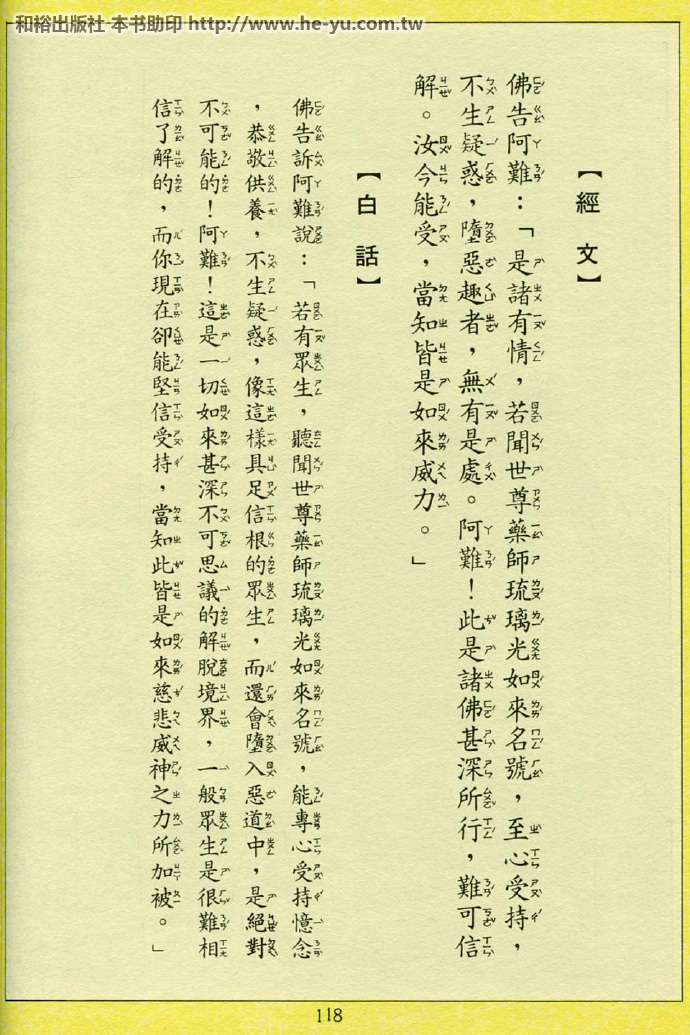 和裕出版社 本书助印 http://www.he-yu.com.tw
【經文】
佛告阿難：「是諸有情，若聞世尊藥師琉璃光如來名號，至心受持，
不生疑惑，墮惡趣者，無有是處。阿難！此是諸佛甚深所行，難可信
解。汝今能受，當知皆是如來威力。」
【白話】
佛告訴阿難說：「若有眾生，聽聞世尊藥師琉璃光如來名號，能專心受持憶念
，恭敬供養，不生疑惑，像這樣具足信根的眾生，而還會墮入惡道中，是絕對
不可能的！阿難！這是一切如來甚深不可思議的解脫境界，一般眾生是很難相
信了解的，而你現在卻能堅信受持，當知此皆是如來慈悲威神之力所加被。」
118